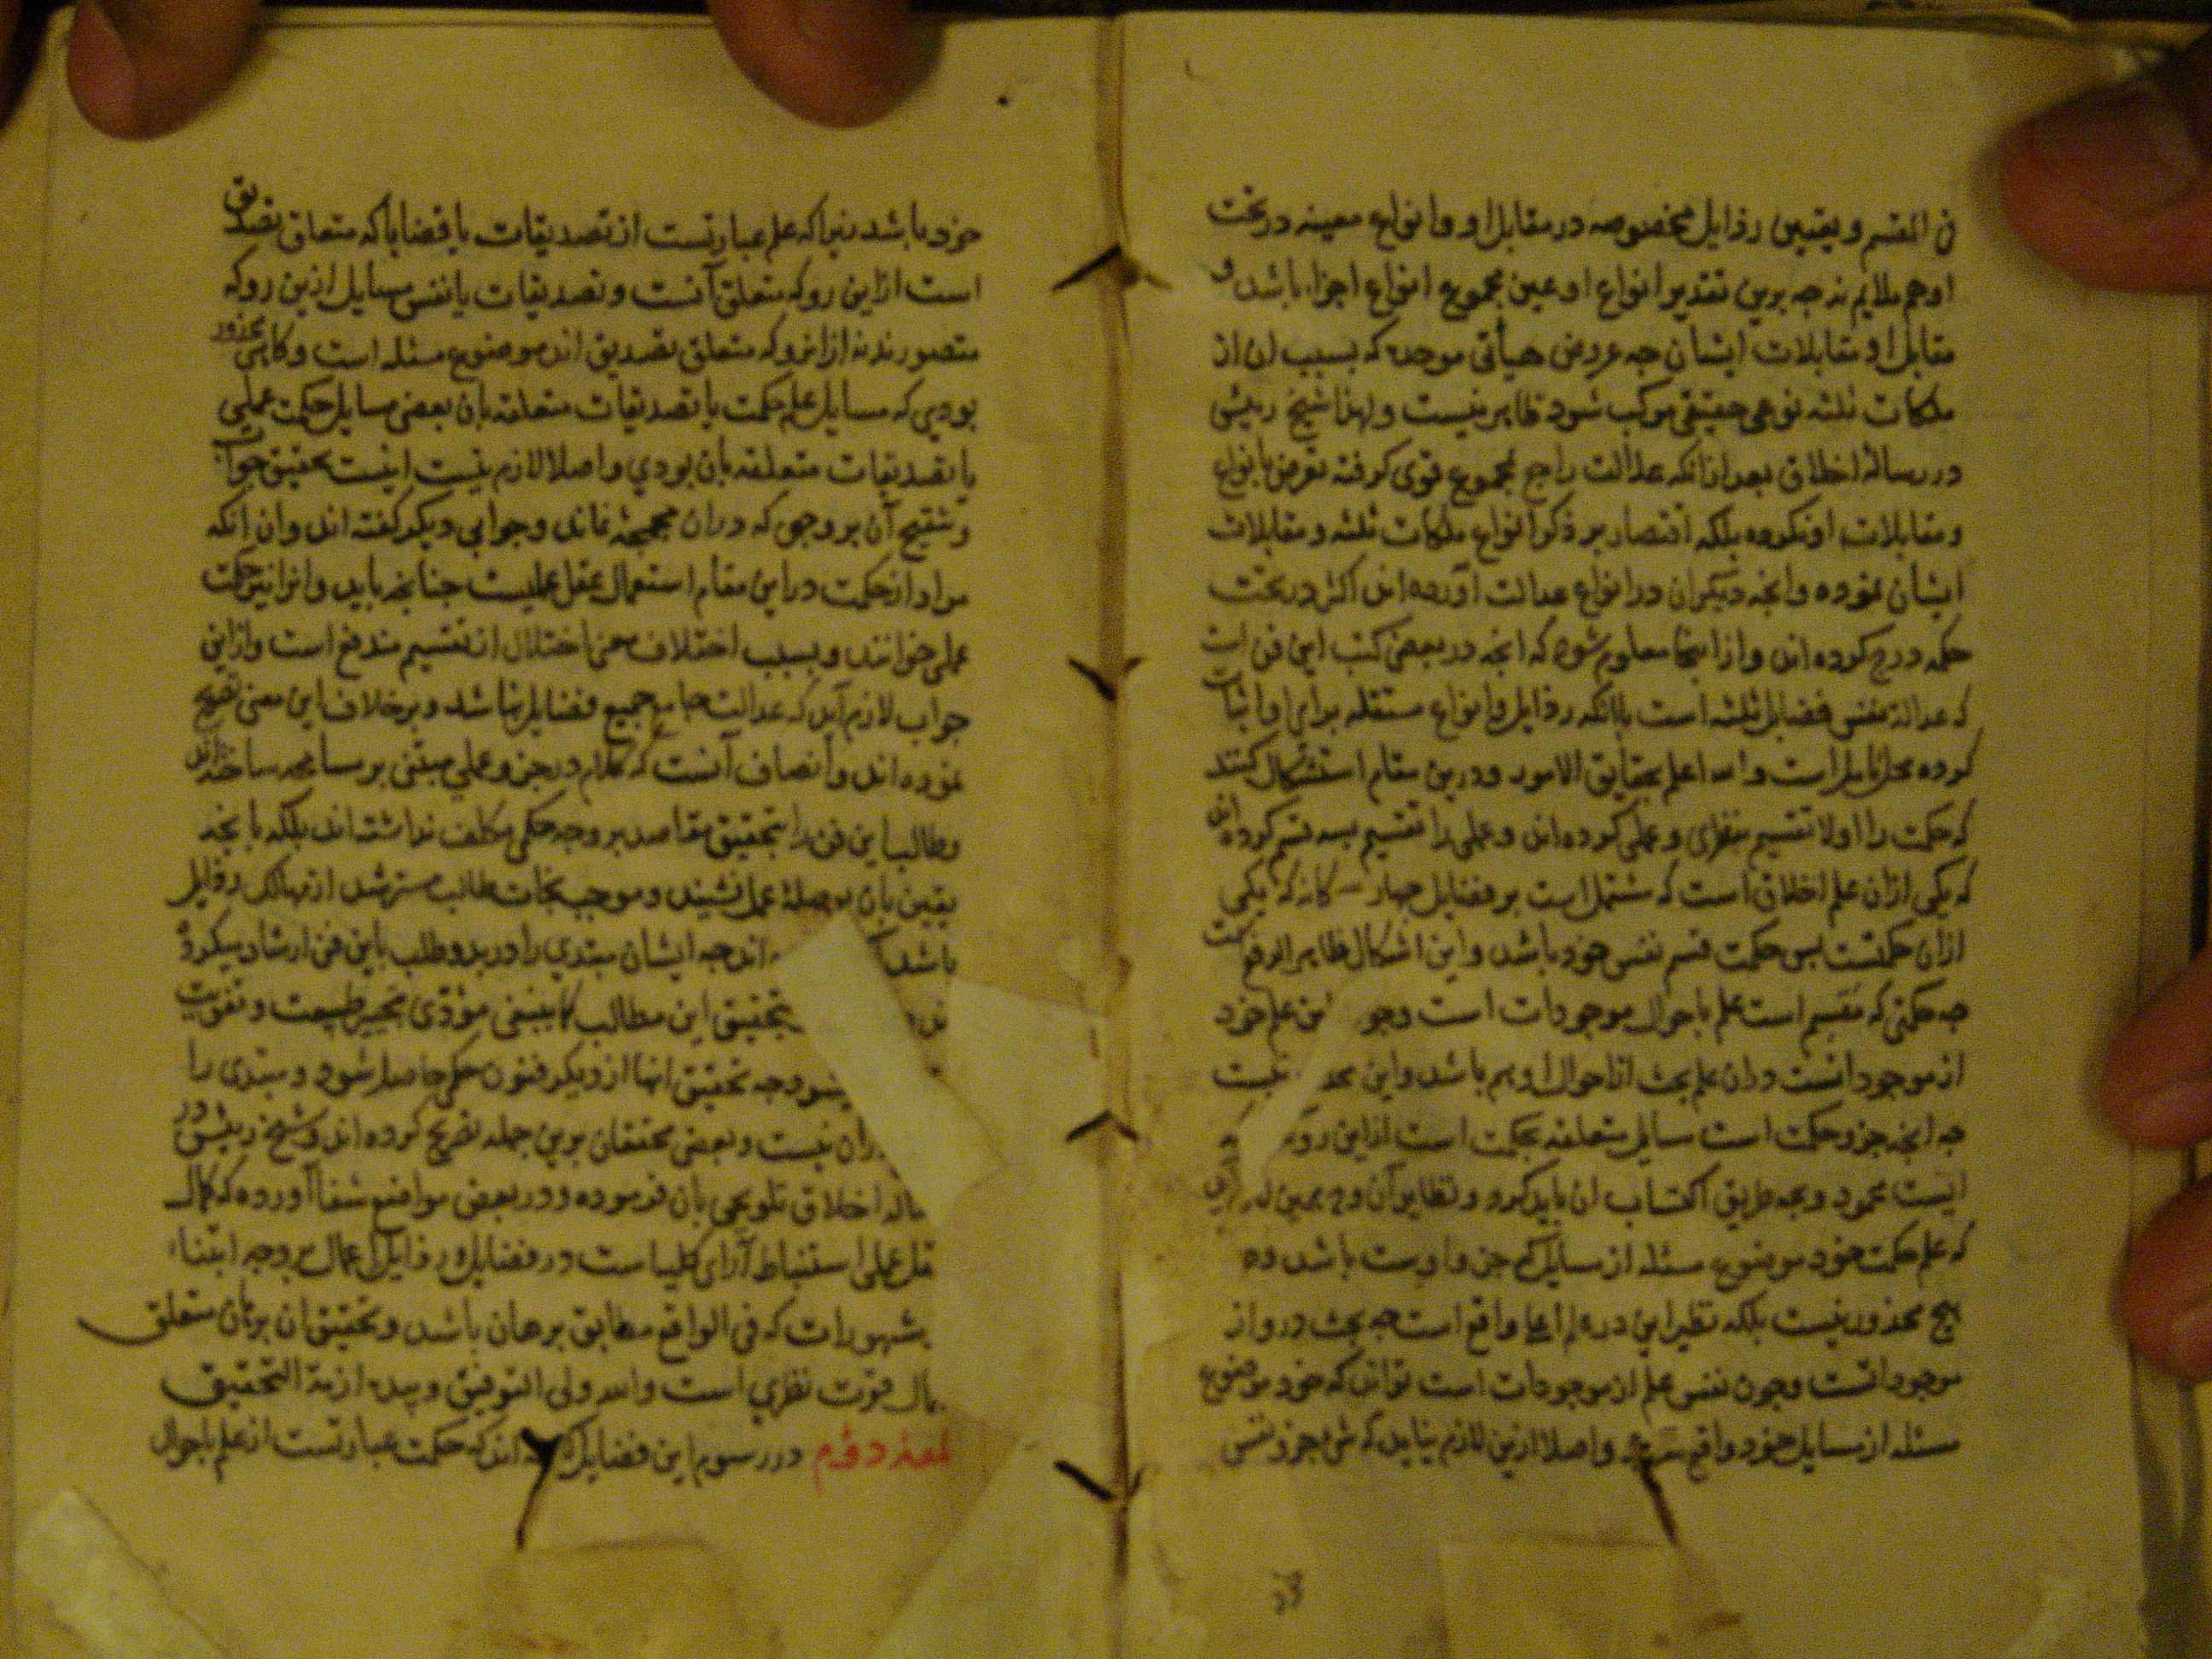 فی المقسم و یعنین رذایل مخصوصه در مقابل او و انواع معینه در تحت
او هم ملایم نه جه برین تقدیر انواع او عین مجموع انواع اجزا باشد و
مقابل او مقابلات ایشان جه عروض هیأتی موحده که بسبب ان از
ملکات ثلثه نوعی حقیقی مرکب شود ظاهر نیست و لهذا شیخ رییس
در رسالهٔ اخلاق بعد از انکه عدالت راجع بمجموع قوی کرفته تعرض بانواع
و مقابلات او نکرده بلکه اقتصار بر ذکر انواع ملکات ثلثه و مقابلات
ایشان نموده وانجه دیکران در انواع عدالت آورده اند اکثر در تحت
حکمه درج کرده اند و از اینجا معلوم شود که انجه در بعضی کتب این فن است
که عدالة نفس فضایل ثلثه است باانکه رذایل و انواع مستقله برای او اثبات
کرده محل تامل است و الله اعلم بحقایق الامور و درین مقام استشکال کنند
که حکمت را اولا تقسیم بنظری و عملی کرده اند و عملی را تقسیم بسه قسم کرده اند
که یکی ازان علم اخلاق است که مشتمل است بر فضایل جهار کانه که یکی
ازان حکمتست بس حکمت قسم نفس خود باشد و این اشکال ظاهر الدفع است
جه حکمتی که مقسم است علم باحوال موجودات است وجون علم خود
از موجوداتست دران علم بحث از احوال او هم باشد و این نیست
جه انجه جزو حکمت است مسایل متعلقه بحکمت است ازاین رو که
ایست محمود و بجه طریق اکتساب ان باید کرد و نظایر آن و
که علم حکمت خود موضوع مسئله از مسایل که جزو اوست باشد و
هیج محذور نیست بلکه نظیر این در واقع است جه بحث درو از
موجوداتست وجون نفس علم از موجودات است تواند که خود موضوع
مسئله از مسایل خود واقع شود و اصلا ازین لازم نیاید که شی جزو نفس
خود باشد زیرا که علم عبارتست از تصدیقات یا قضایا که متعلق تصدیق
است ازاین رو که متعلق آنست و تصدیقات یا نفس مسایل ازین رو که
متصورند نه ازانرو که متعلق تصدیق اند موضوع مسئله است و کاهی محذور
بودی که مسایل علم حکمت یا تصدیقات متعلقه بان بعضی مسایل حکمت عملی
یا تصدیقات متعلقه بان بودی و اصلا لازم نیست اینست تحقیق جواب
و تنقیح آن بر وجهی که دران مجمجهٔ نماند و جوابی دیکر کفته اند وان انکه
مراد از حکمت دراین مقام استعمال عقل عملیست جنانجه باید و انرا نیز حکمت
عملی خوانند و بسبب اختلاف معنی اختلال از تقسیم مندفع است و ازاین
جواب لازم آید که عدالت جامع جمیع فضایل نباشد و بر خلاف این معنی تصریح
نموده اند و انصاف آنست که کلام در جزو عملی مبتنی بر مسامحه ساخته اند
و طالب این فن را بتحقیق مقاصد بر وجه حکمی مکلف نداشته اند بلکه بانجه
یقین بان وصلهٔ عمل نشیند و موجب نجات طالب مسترشد از مهالک رذایل
باشد اند جه ایشان مبتدی را در بدو طلب باین فن ارشاد میکرد
تحقیق این مطالب کما ینبغی مؤدی بتحیر طبیعت و تفویت
جه تحقیق انها از دیکر فنون حکمی حاصل شود و مبتدی را
دران نیست و بعضی محققان برین جمله تصریح کرده اند و شیخ رییس در
اخلاق تلویحی بان فرموده و در بعضی مواضع شفا آورده که کمال
عملی استنباط آرای کلیاست در فضایل و رذایل اعمال بر وجه ابتناء
بشهورات که فی الواقع مطابق برهان باشد و تحقیق ان برهان متعلق
بکمال قوت نظری است و الله ولی التوفیق و بیده ازمة التحقیق
لمعه دوم در رسوم این فضایل اند که حکمت عبارتست از علم باحوال